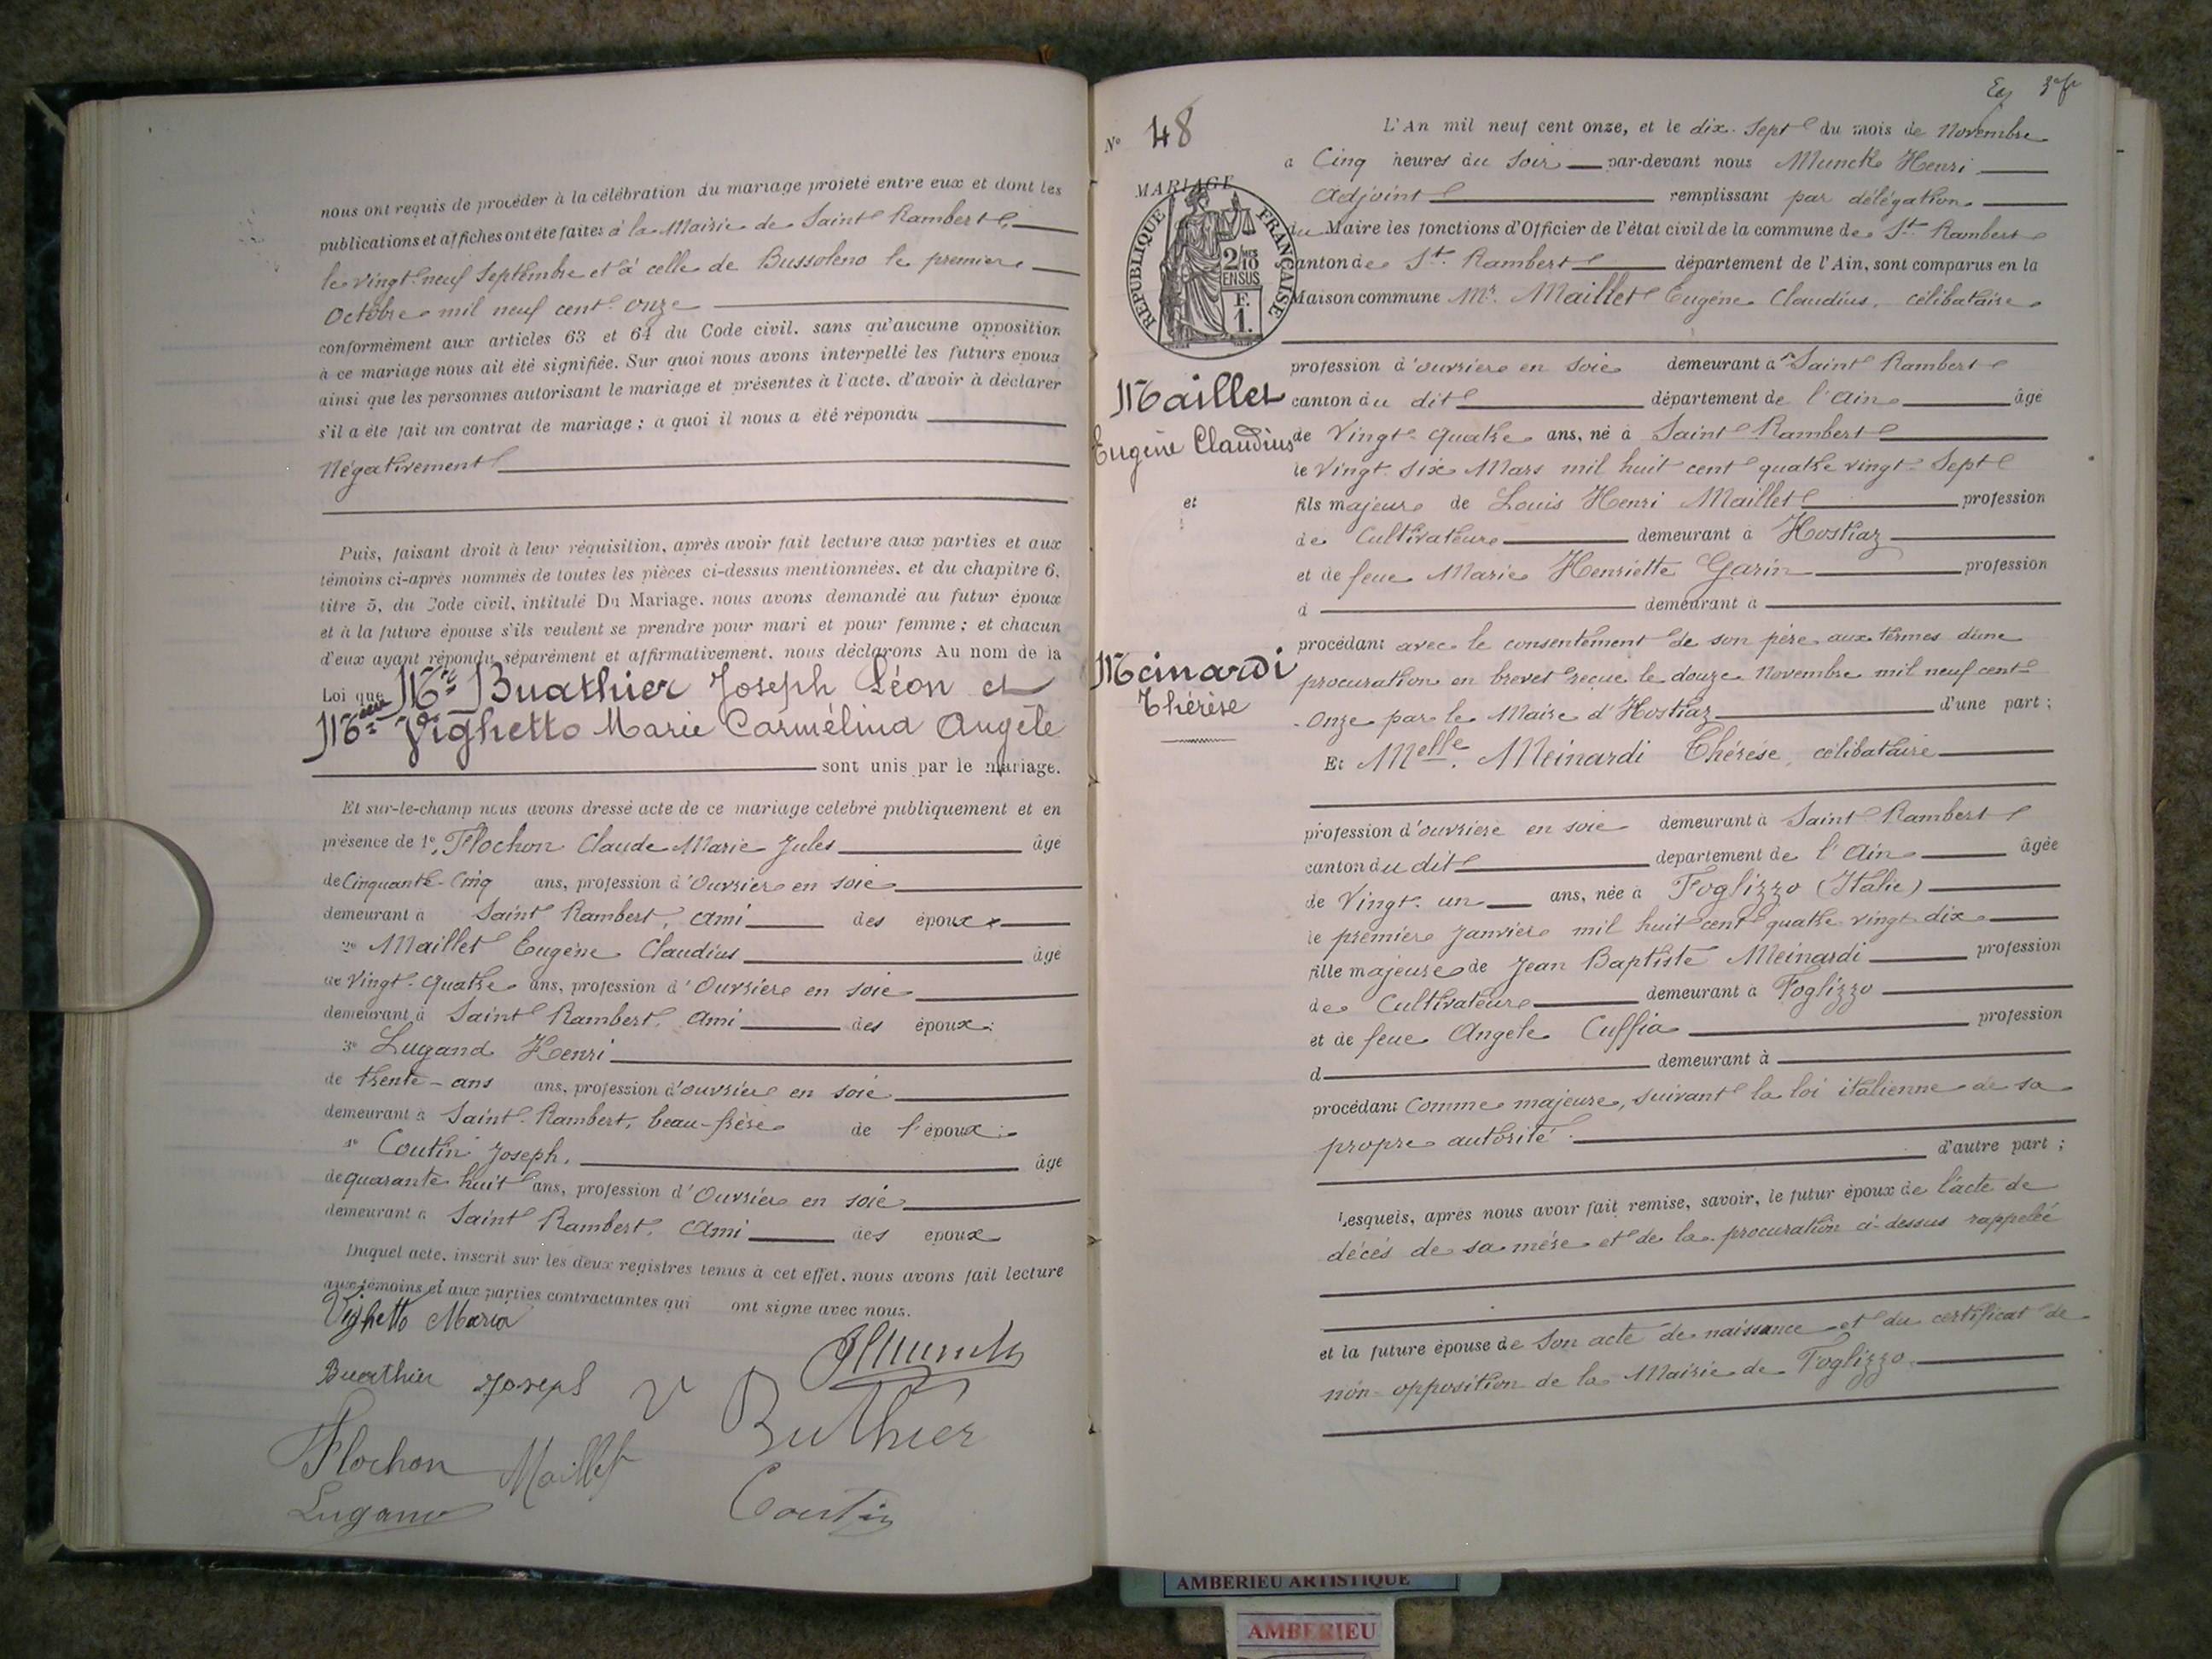 nous ont requis de procéder à la célébration du mariage projeté entre eux et dont les
publications et affiches ont été faites à la Mairie de Saint Rambert,
le vingt-neuf Septembre et à celle de Bussoleno le premier
Octobre mil neuf cent onze
conformément aux articles 63 et 64 du Code civil, sans qu'aucune opposition
à ce mariage nous ait été signifiée. Sur quoi nous avons interpellé les futurs époux
ainsi que les personnes autorisant le mariage et présentes à l'acte, d'avoir à déclarer
s'il a été fait un contrat de mariage ; à quoi il nous a été répondu
Négativement
Puis, faisant droit à leur réquisition, après avoir fait lecture aux parties et aux
témoins ci-après nommés de toutes les pièces ci-dessus mentionnées, et du chapitre 6,
titre 5, du Code civil, intitulé Du Mariage, nous avons demandé au futur époux
et à la future épouse s'ils veulent se prendre pour mari et pour femme ; et chacun
d'eux ayant répondu séparément et affirmativement, nous déclarons Au nom de la
Loi que Mr Buathier Joseph Léon et
Melle Vighetto Marie Carmélina Angèle
sont unis par le mariage.
Et sur-le-champ nous avons dressé acte de ce mariage célébré publiquement et en
présence de 1º, Flochon Claude Marie Jules âgé
de Cinquante-Cinq ans, profession d'Ouvrier en soie
demeurant à Saint Rambert, ami des époux
2º Maillet Eugène Claudius âgé
de Vingt-quatre ans, profession d'Ouvrier en soie
demeurant à Saint Rambert, ami des époux ;
3º Lugand Henri
de trente-ans ans, profession d'ouvrier en soie
demeurant à Saint-Rambert, beau-frère de l'époux ;
4º Coutin Joseph, âgé
de quarante huit ans, profession d'Ouvrier en soie
demeurant à Saint Rambert, ami des époux
Duquel acte, inscrit sur les deux registres tenus à cet effet, nous avons fait lecture
aux témoins et aux parties contractantes qui ont signé avec nous.
Vighetto Maria
Buathier Joseph
Buthier
Flochon Maillet
Lugand
Coutin
Nº 48
MARIAGE
RÉPUBLIQUE FRANÇAISE
2/10 EN SUS
F. 1.
Maillet
Eugène Claudius
et
Meinardi
Thérèse
L'An mil neuf cent onze, et le dix-sept du mois de Novembre
à Cinq heures du Soir par-devant nous Munck Henri
Adjoint remplissant par délégation
du Maire les fonctions d'Officier de l'état civil de la commune de St Rambert
canton de St Rambert département de l'Ain, sont comparus en la
Maison commune Mr. Maillet Eugène Claudius, célibataire
profession d'ouvrier en soie demeurant à Saint Rambert
canton du dit département de l'Ain âgé
de Vingt-quatre ans, né à Saint Rambert
le Vingt-six Mars mil huit cent quatre vingt-sept
fils majeur de Louis Henri Maillet profession
de Cultivateur demeurant à Hostiaz
et de feue Marie Henriette Garin profession
d demeurant à
procédant avec le consentement de son père aux termes d'une
procuration en brevet reçue le douze Novembre mil neuf cent
onze par le Maire d'Hostiaz d'une part ;
Et Melle. Meinardi Thérèse, célibataire
profession d'ouvrière en soie demeurant à Saint Rambert
canton du dit département de l'Ain âgée
de Vingt-un ans, née à Foglizzo (Italie)
le premier Janvier mil huit cent quatre-vingt-dix
fille majeure de Jean Baptiste Meinardi profession
de Cultivateur demeurant à Foglizzo
et de feue Angèle Cuffia profession
d demeurant à
procédant comme majeure, suivant la loi italienne de sa
propre autorité.
d'autre part ;
Lesquels, après nous avoir fait remise, savoir, le futur époux de l'acte de
décès de sa mère et de la procuration ci-dessus rappelée
et la future épouse de son acte de naissance et du certificat de
non-opposition de la Mairie de Foglizzo.
AMBERIEU ARTISTIQUE
AMBERIEU